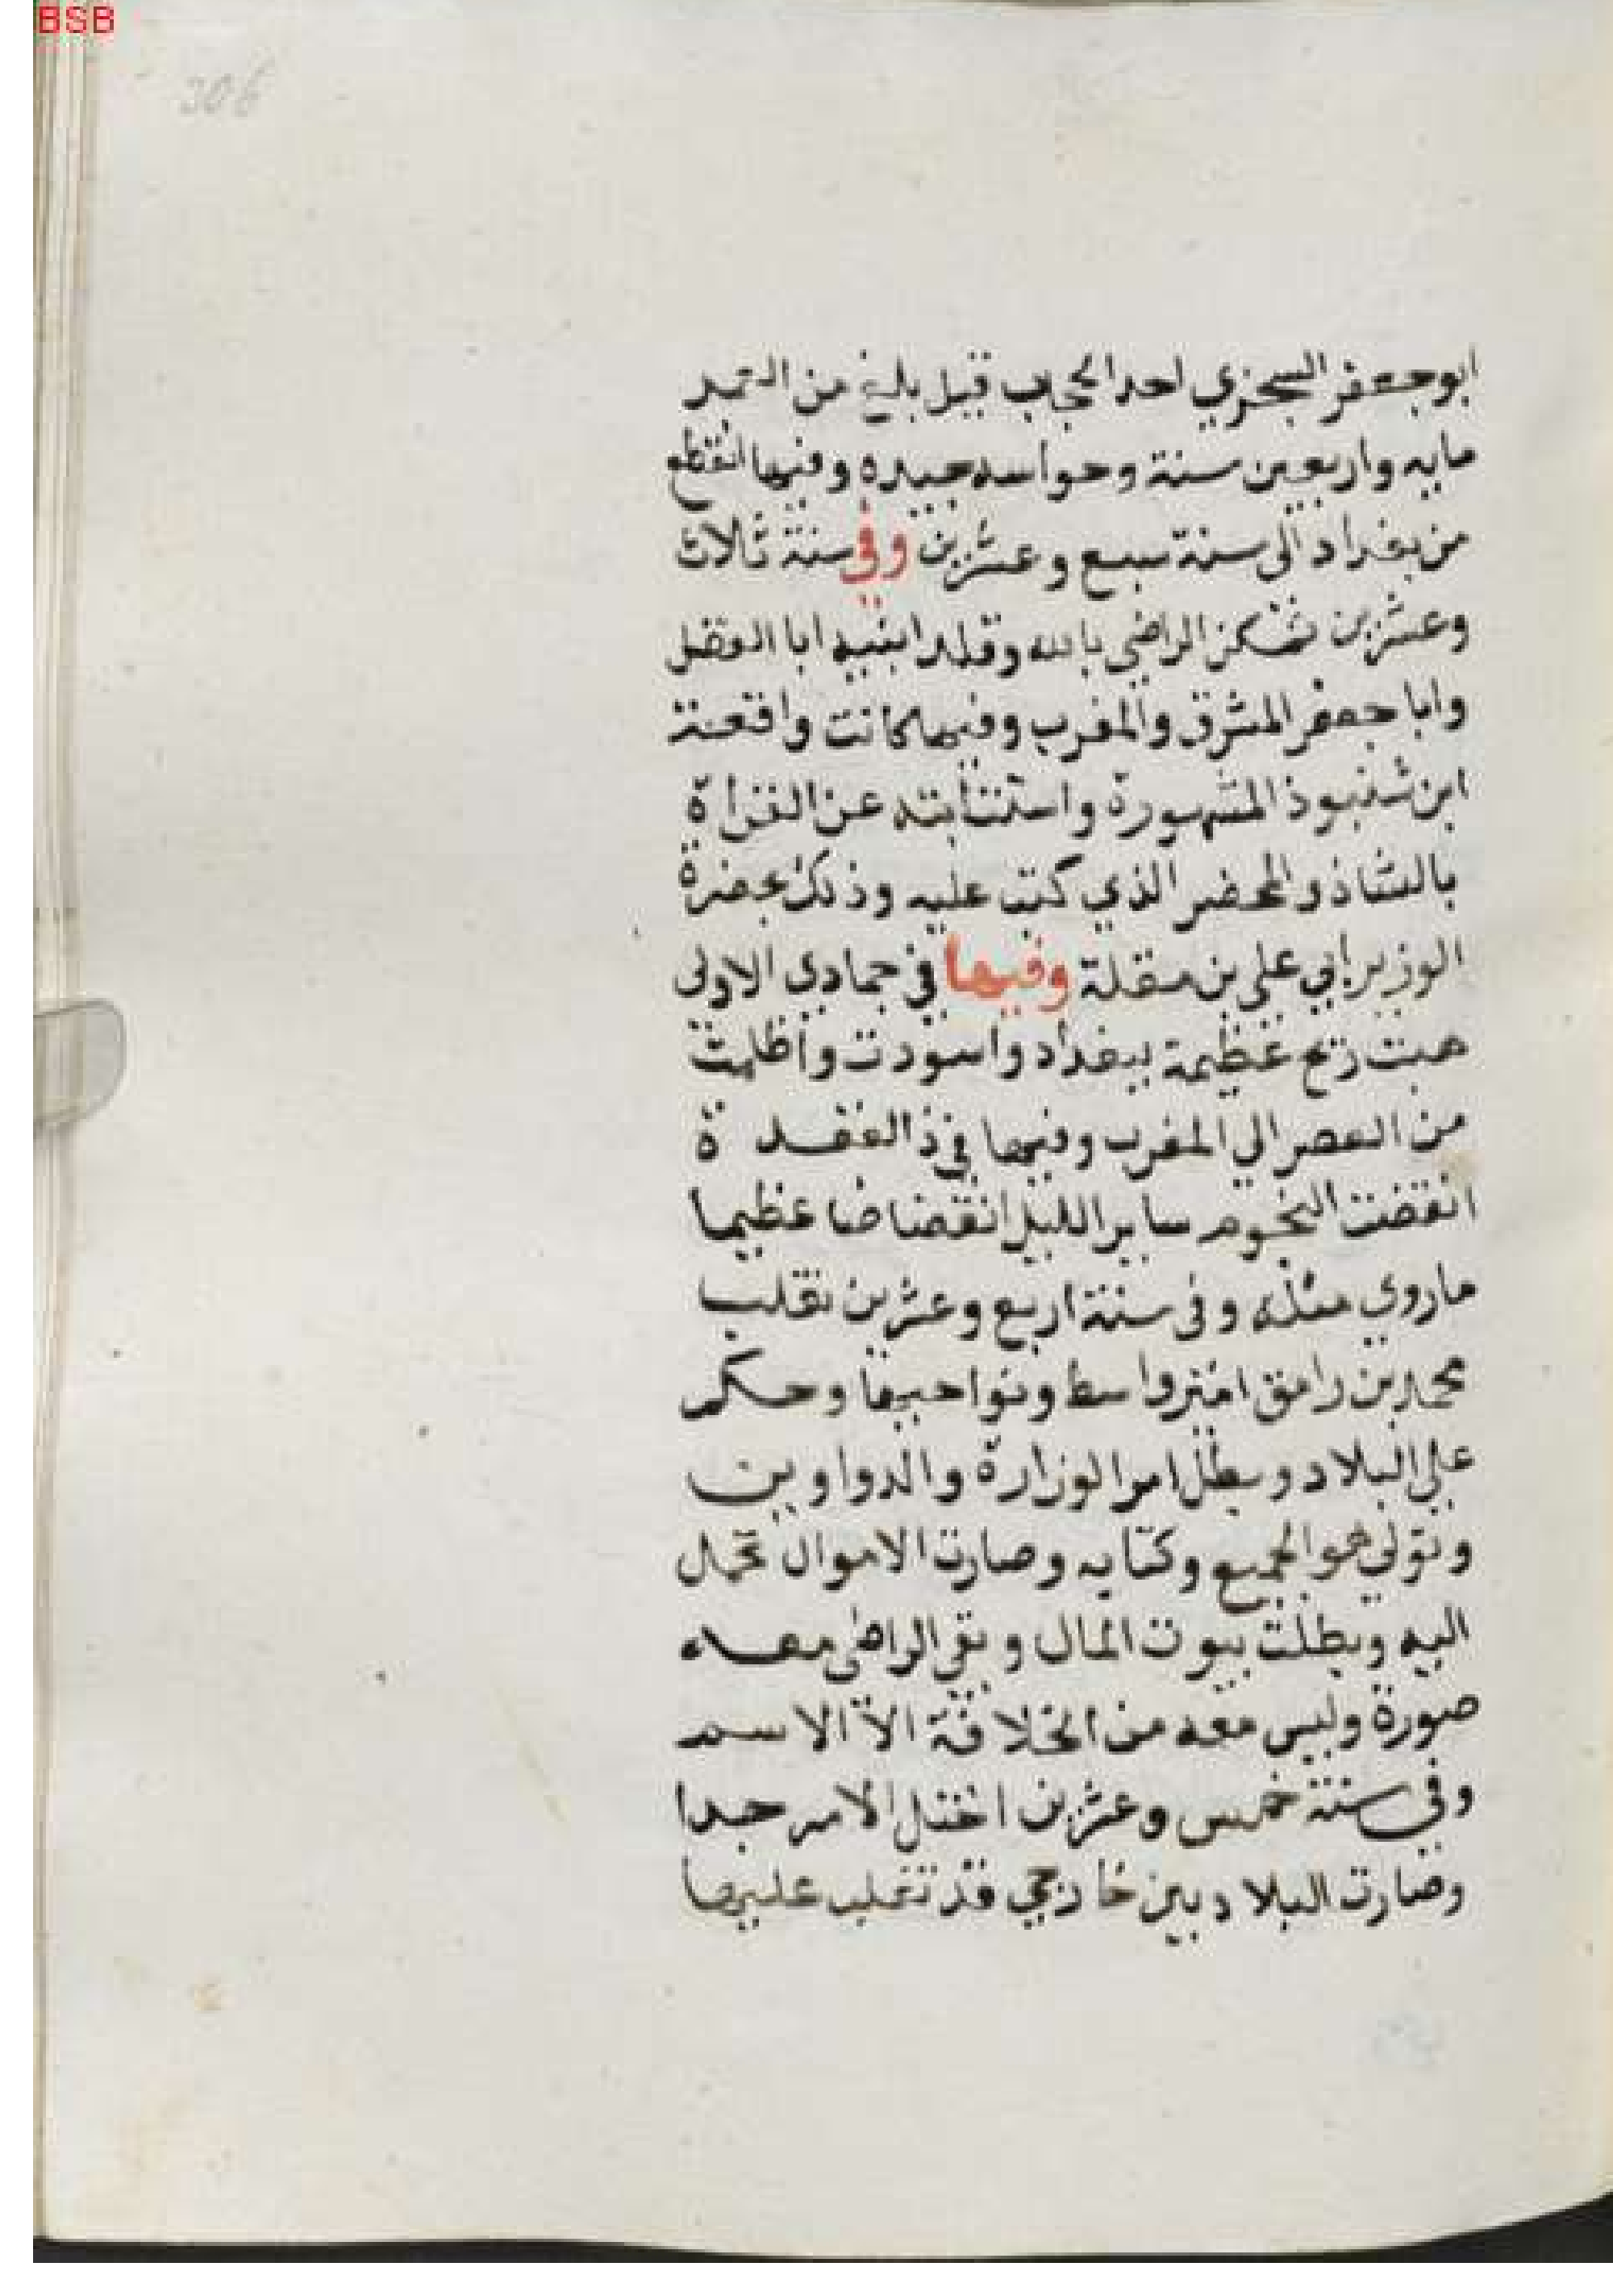 BSB
306
ابو جعفر السجزي احد الحجاب قيل بلغ من العمر
مايه واربعين سنة وحواسه جيده وفيها انقطع
من بغداد الى سنة سبع وعشرين وفي سنة ثلاث
وعشرين تمكن الراضي بالله وقلد ابنيه ابا الفضل
وابا جعفر المشرق والمغرب وفيها كانت واقعة
ابن شنبوذ المشهورة واستتابته عن القراة
بالشاذ والمحضر الذي كتب عليه وذلك بحضرة
الوزير ابي علي بن مقلة وفيها في جمادي الاولى
هبت ريح عظيمة ببغداد واسودت واظلمت
من العصر الي المغرب وفيها في ذ القعدة
انقضت النجوم ساير الليل انقضاضا عظيما
ماروي مثله وفي سنة اربع وعشرين تغلب
محمد بن رامق امير واسط ونواحيها وحكم
علي البلاد وبطل امر الوزارة والدواوين
وتولي هو الجميع وكتابه وصارت الاموال تحمل
اليه وبطلت بيوت المال وبقي الراضي معه
صورة وليس معه من الخلافة الا الاسم
وفي سنة خمس وعشرين اختل الامر جدا
وصارت البلاد بين خارجي قد تغلب عليها